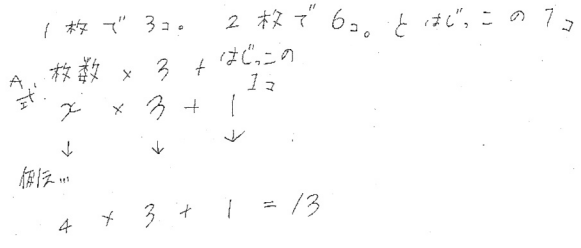 1枚で3コ。2枚で6コ。とはじっこの1コ
枚数 × 3 + はじっこの1コ
A式. x × 3 + 1
↓ ↓ ↓
例えば…
4 × 3 + 1 = 13